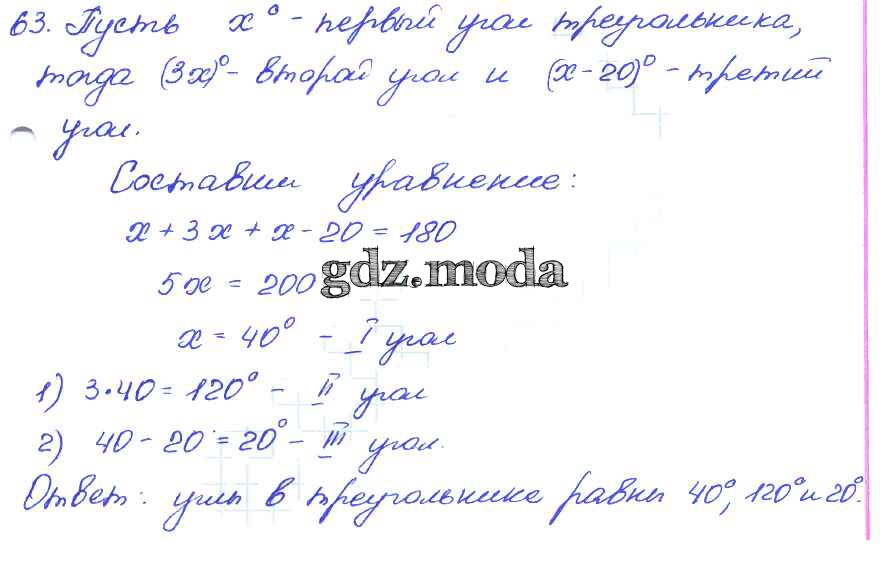 63. Пусть x° - первый угол треугольника,
тогда (3x)° - второй угол и (x-20)° - третий
угол.
Составим уравнение:
x + 3x + x - 20 = 180
5x = 200
gdz.moda
x = 40° - I угол
1) 3·40 = 120° - II угол
2) 40 - 20 = 20° - III угол.
Ответ: углы в треугольнике равны 40°, 120° и 20°.